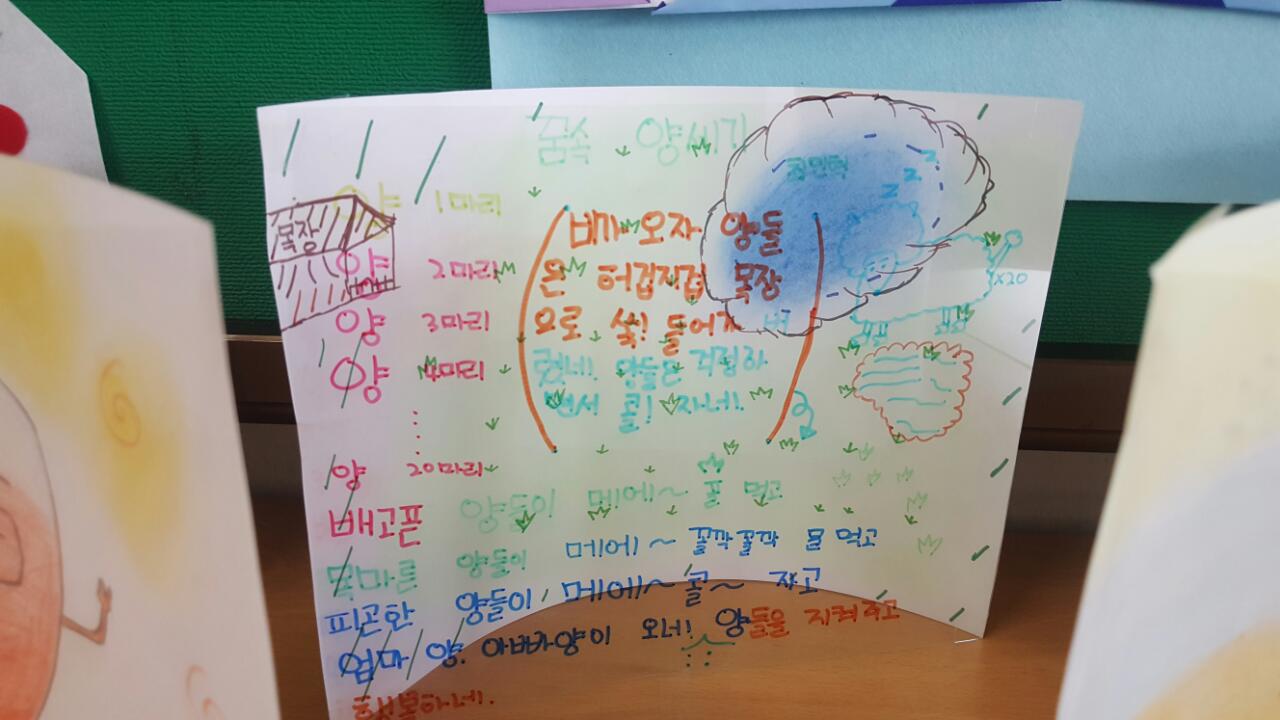 꿈속 양세기
목장
양 1마리
양 2마리
양 3마리
양 4마리
양 20마리
비가 오자 양들
은 허겁지겁 목장
으로 쏙! 들어가 버
렸네! 양들은 걱정하
면서 콜! 자네!
x20
배고픈 양들이 메!에~ 풀 먹고
목마른 양들이 메에!~ 꼴깍꼴깍 물 먹고
피곤한 양들이 메에!~ 콜~ 자고
엄마 양, 아빠양이 오네! 양들을 지켜주고
행복하네.